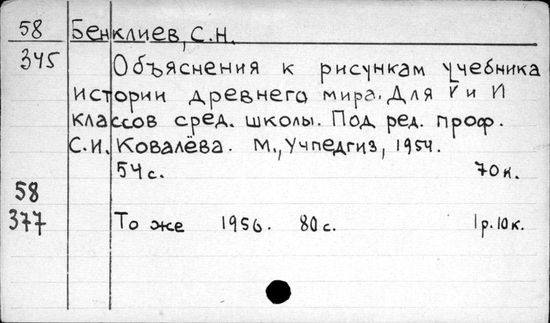 58 Бенклиев, С.Н.
345 Объяснения к рисункам учебника
истории древнего мира. Для V и VI
классов сред. школы. Под ред. проф.
С.И. Ковалёва. М., Учпедгиз, 1954.
54 с. 70 к.
58
377 То же 1956. 80 с. 1 р. 10 к.